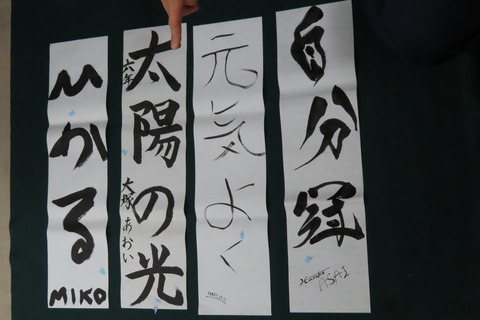 自分冠
ASAI
元気よく
太陽の光
六年 大塚あおい
ひかる
MIKO